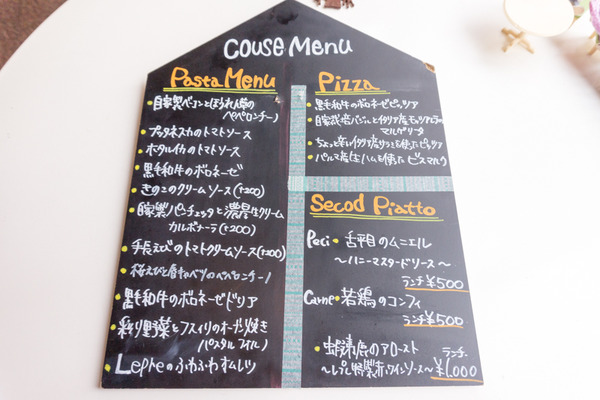 COUSE MENU
Pasta Menu
自家製ベーコンとほうれん草の
ペペロンチーノ
プッタネスカのトマトソース
ホタルイカのトマトソース
黒毛和牛のボロネーゼ
きのこのクリームソース(+200)
自家製パンチェッタと濃厚生クリーム
カルボナーラ(+200)
手長えびのトマトクリームソース(+200)
桜えびと春キャベツのペペロンチーノ
黒毛和牛のボロネーゼドリア
彩り野菜とフスィリのオーブン焼き
Lepreのふわふわオムレツ
Pizza
黒毛和牛のボロネーゼピッツァ
自家栽培バジルとイタリア産モッツァレラの
マルゲリータ
ちょっと辛いイタリア産サラミを使ったピッツァ
パルマ産生ハムを使た ビスマルク
Secod Piatto
Peci・舌平目のムニエル
~ハニーマスタードソース~
ランチ¥500
Carne・若鶏のコンフィ
ランチ¥500
蝦夷鹿のアロースト
ランチ
~レプレ特製赤ワインソース~ ¥1,000